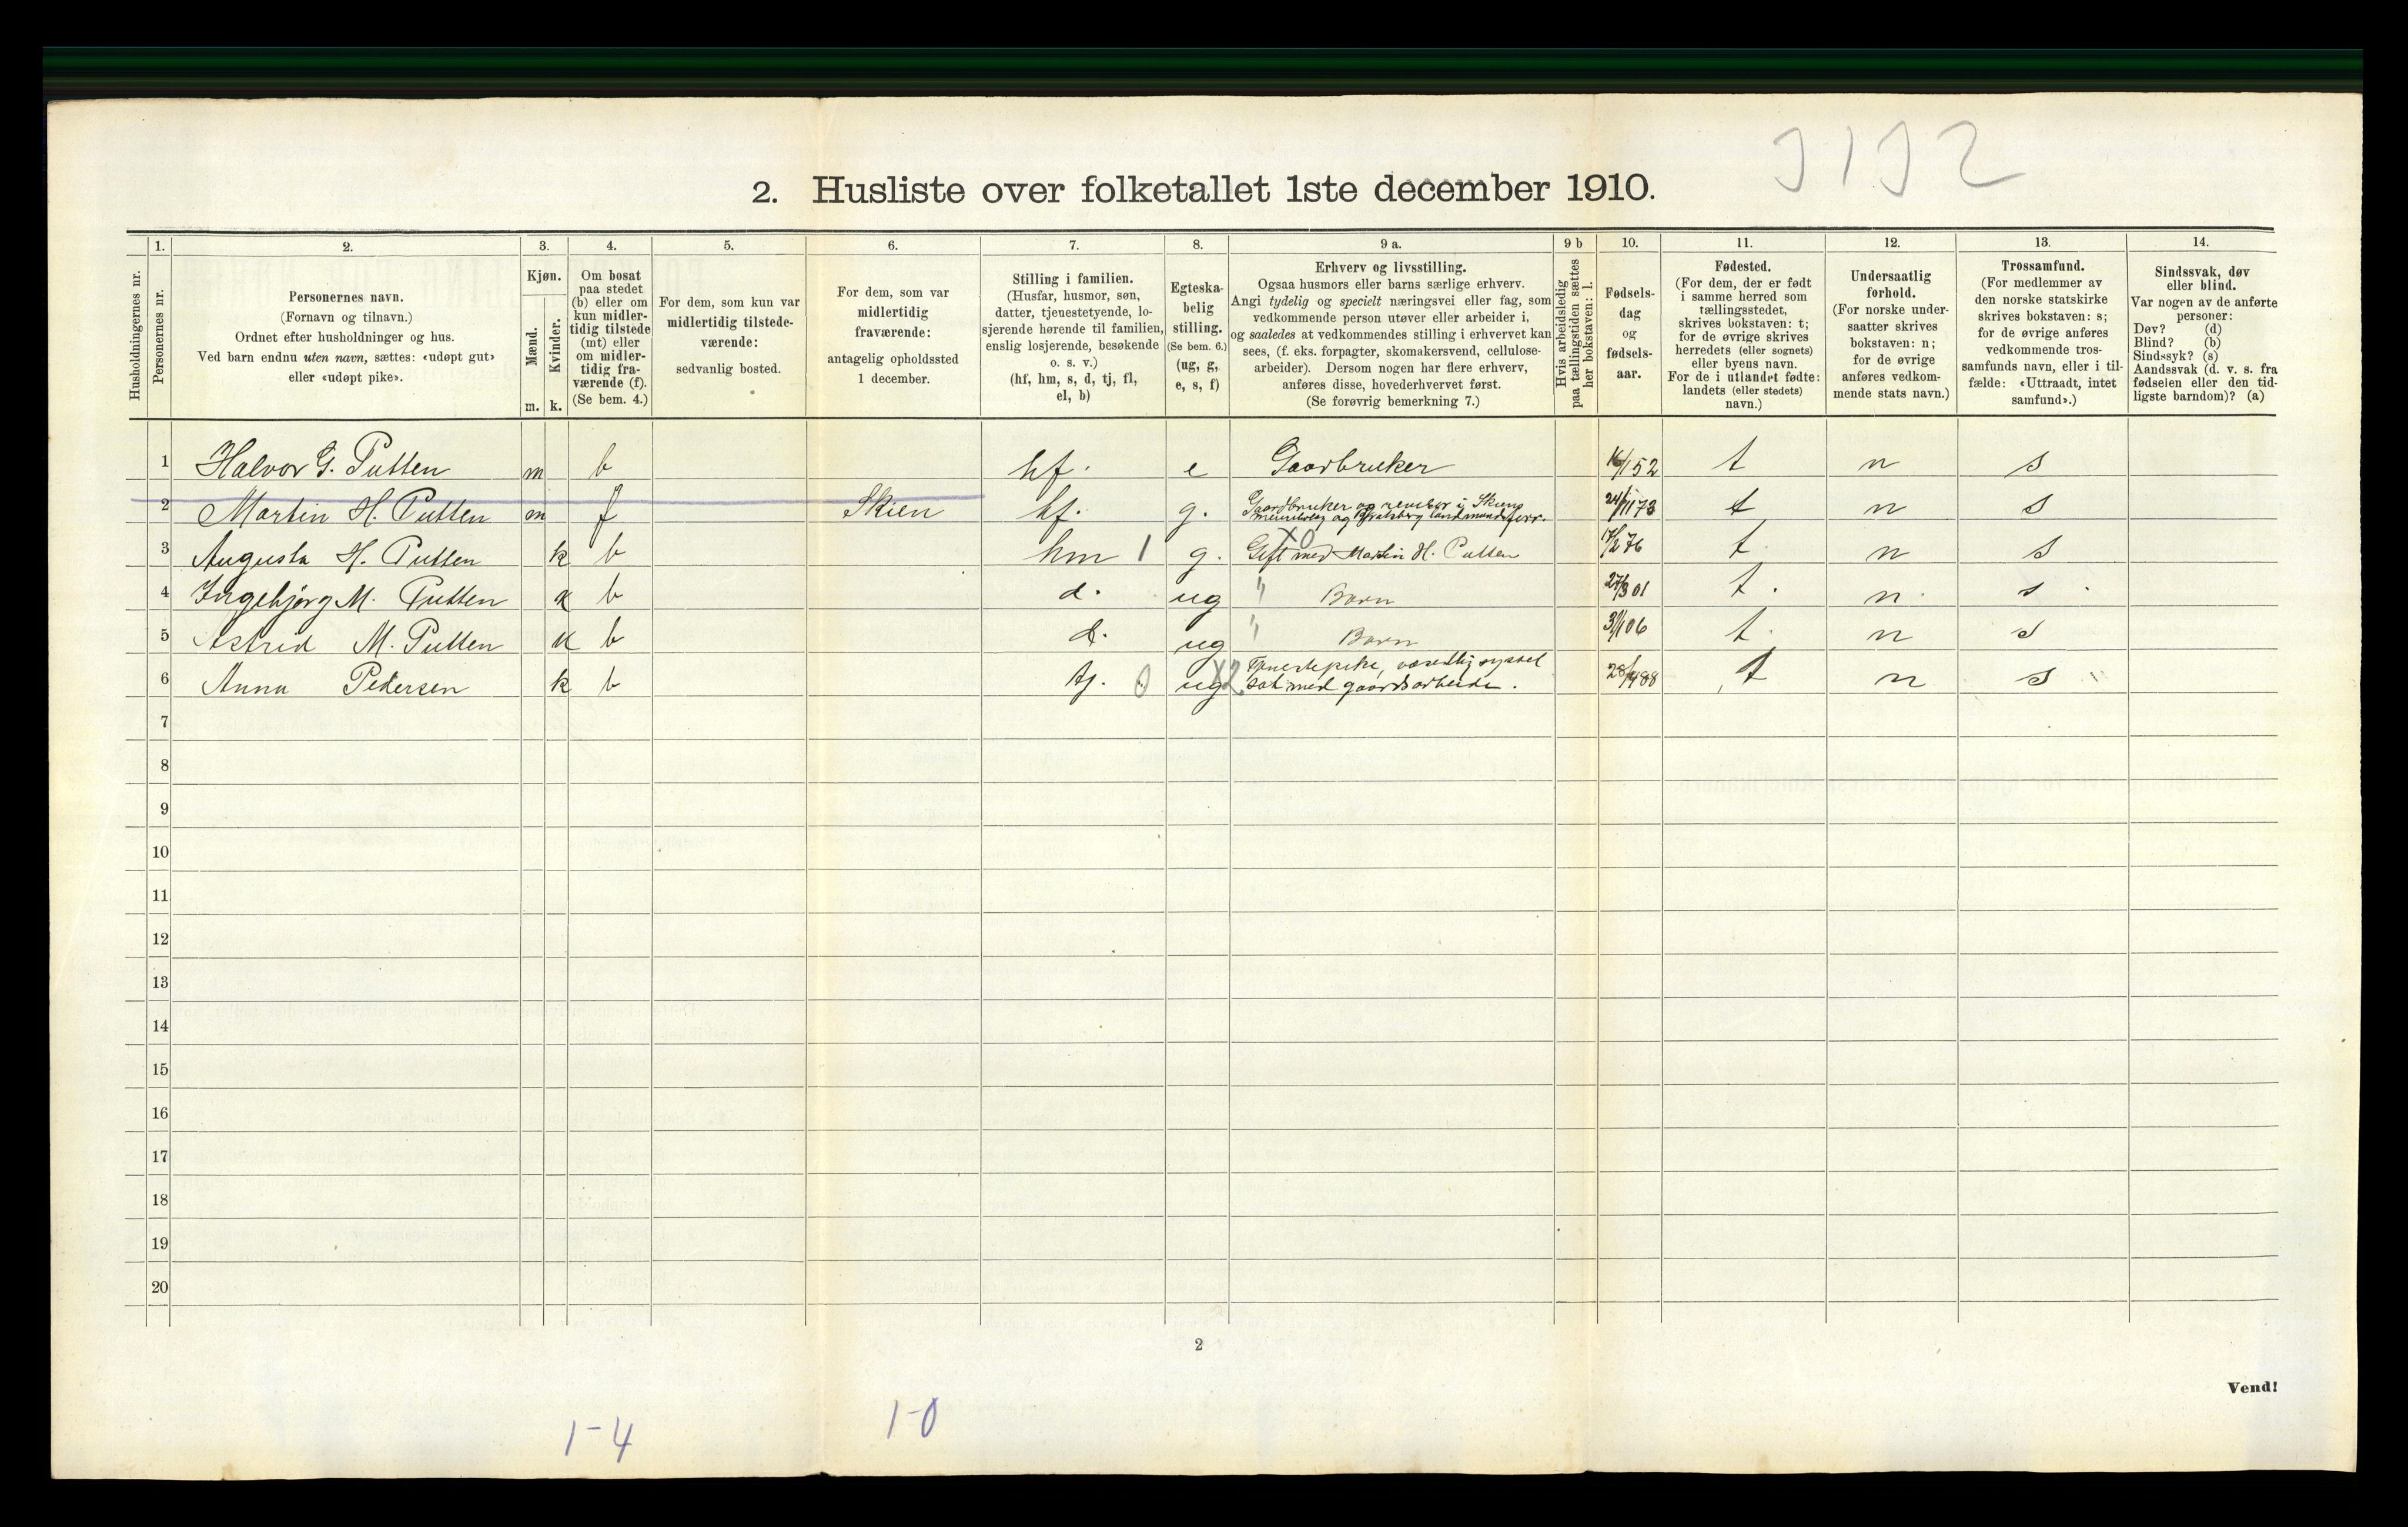 3132
2. Husliste over folketallet 1ste december 1910.
Husholdningernes nr.
1.
Personernes nr.
2.
Personernes navn.
(Fornavn og tilnavn.)
Ordnet efter husholdninger og hus.
Ved barn endnu uten navn, sættes: «udøpt gut»
eller «udøpt pike».
3.
Kjøn.
Mænd.
Kvinder.
m. k.
4.
Om bosat
paa stedet
(b) eller om
kun midler-
tidig tilstede
(mt) eller
om midler-
tidig fra-
værende (f).
(Se bem. 4.)
5.
For dem, som kun var
midlertidig tilstede-
værende:
sedvanlig bosted.
6.
For dem, som var
midlertidig
fraværende:
antagelig opholdssted
1 december.
7.
Stilling i familien.
(Husfar, husmor, søn,
datter, tjenestetyende, lo-
sjerende hørende til familien,
enslig losjerende, besøkende
o. s. v.)
(hf, hm, s, d, tj, fl,
el, b)
8.
Egteska-
belig
stilling.
(Se bem. 6.)
(ug, g,
e, s, f)
9 a.
Erhverv og livsstilling.
Ogsaa husmors eller barns særlige erhverv.
Angi tydelig og specielt næringsvei eller fag, som
vedkommende person utøver eller arbeider i,
og saaledes at vedkommendes stilling i erhvervet kan
sees, (f. eks. forpagter, skomakersvend, cellulose-
arbeider). Dersom nogen har flere erhverv,
anføres disse, hovederhvervet først.
(Se forøvrig bemerkning 7.)
9 b
Hvis arbeidsledig
paa tællingstiden sættes
her bokstaven: l.
10.
Fødsels-
dag
og
fødsels-
aar.
11.
Fødested.
(For dem, der er født
i samme herred som
tællingsstedet,
skrives bokstaven: t;
for de øvrige skrives
herredets (eller sognets)
eller byens navn.
For de i utlandet fødte:
landets (eller stedets)
navn.)
12.
Undersaatlig
forhold.
(For norske under-
saatter skrives
bokstaven: n;
for de øvrige
anføres vedkom-
mende stats navn.)
13.
Trossamfund.
(For medlemmer av
den norske statskirke
skrives bokstaven: s;
for de øvrige anføres
vedkommende tros-
samfunds navn, eller i til-
fælde: «Uttraadt, intet
samfund».)
14.
Sindssvak, døv
eller blind.
Var nogen av de anførte
personer:
Døv? (d)
Blind? (b)
Sindssyk? (s)
Aandssvak (d. v. s. fra
fødselen eller den tid-
ligste barndom)? (a)
1 Halvor G. Putten m b hf. e Gaarbruker 16/1 52 t n s
2 Martin H. Putten m f Skien hf. g. Gaardbruker og revisor i Skiens
og Bratsberg landmandsforr. 24/11 73 t n s
3 Augusta H. Putten k b hm 1 g. X0 Gift med Martin H. Putten 17/2 76 t n s
4 Ingebjørg M. Putten k b d. ug " Barn 27/3 01 t. n. s.
5 Astrid M. Putten k b d. ug " Barn 31/1 06 t. n s
6 Anna Pedersen k b tj. 0 ug X2 Tjenestepike, væsentlig syssel
sat med gaardsarbeide. 28/4 88 t n s "
7
8
9
10
11
12
13
14
15
16
17
18
19
20
2
Vend!
1-4
1-0